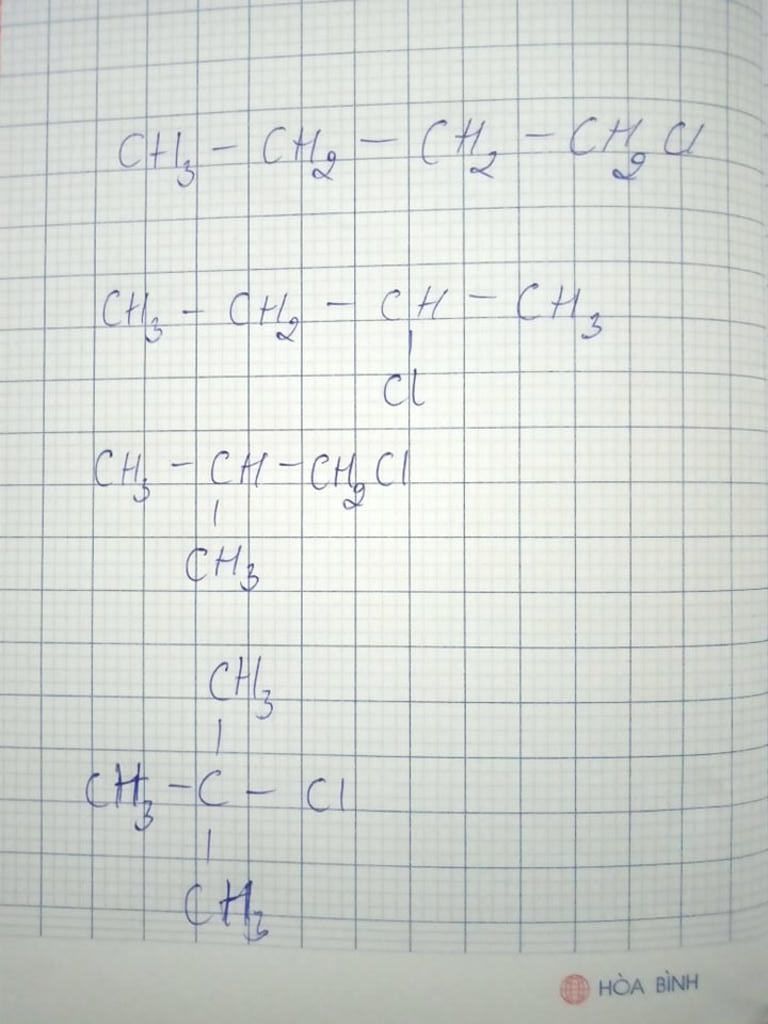 CH3 - CH2 - CH2 - CH2Cl
CH3 - CH2 - CH - CH3
|
Cl
CH3 - CH - CH2Cl
|
CH3
CH3
|
CH3 - C - Cl
|
CH3
HÒA BÌNH